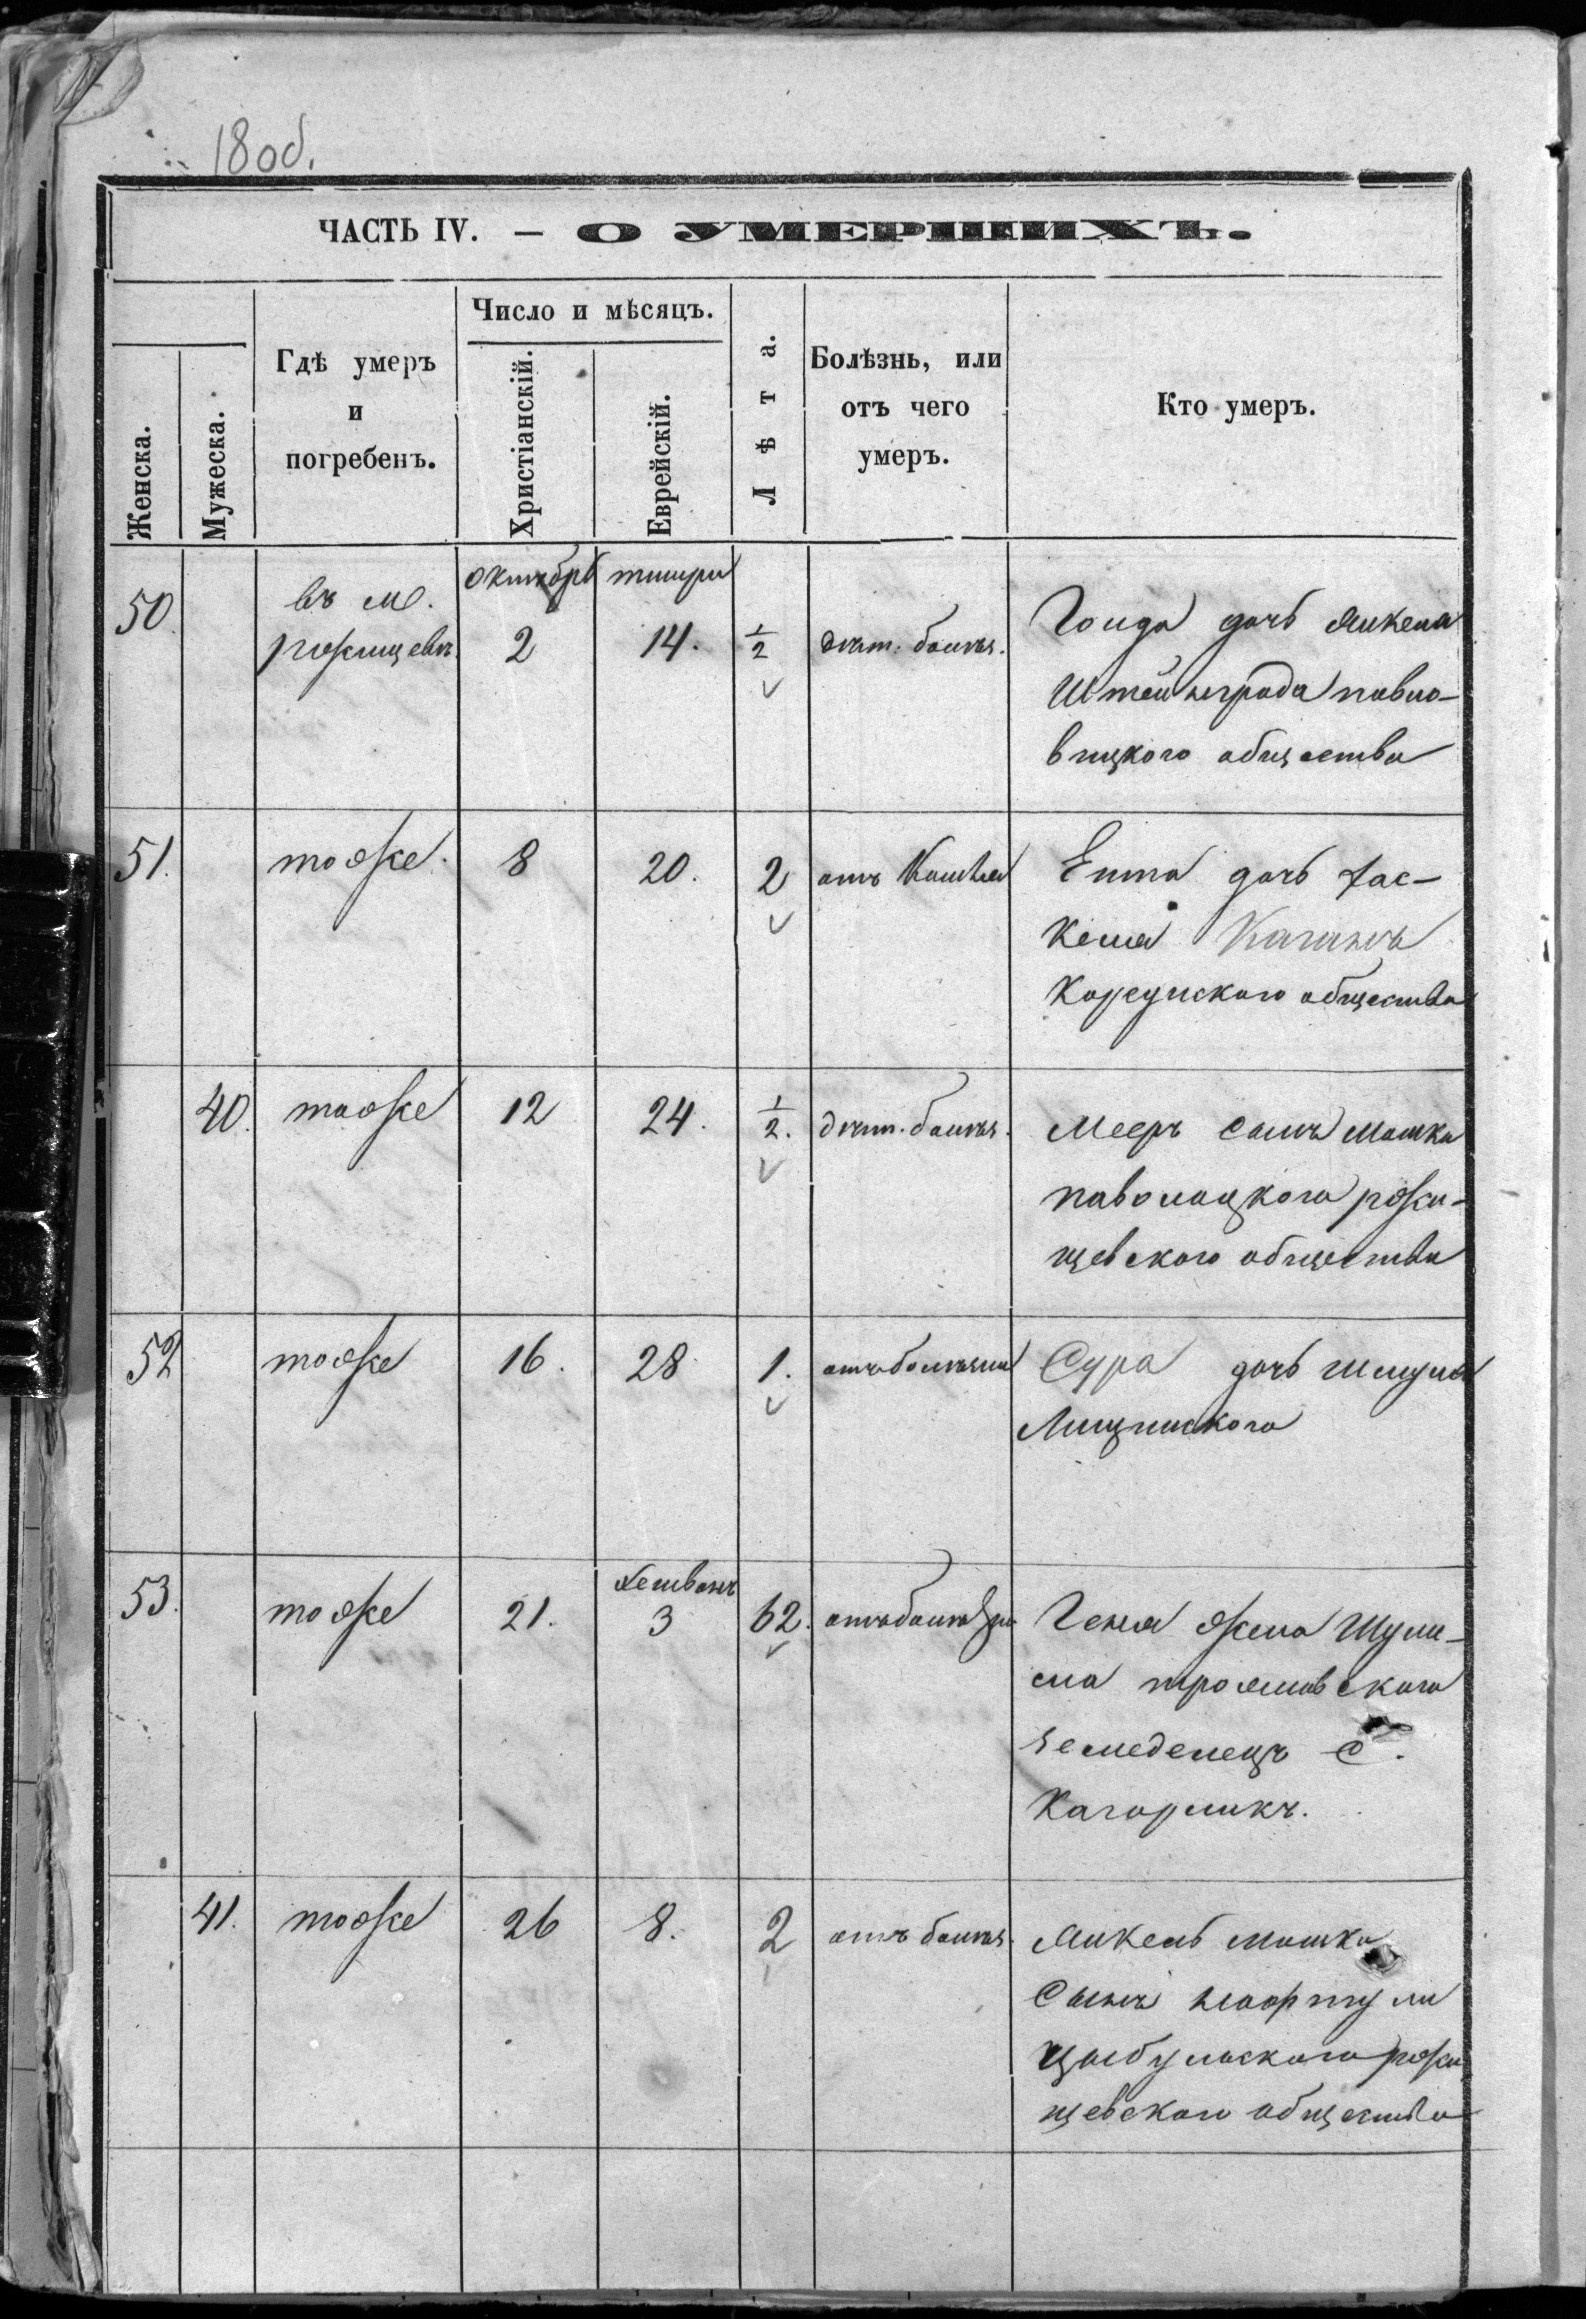 18об.
ЧАСТЬ IV. — О УМЕРШИХЪ.
Женска.
Мужеска.
Гдѣ умеръ
и
погребенъ.
Число и мѣсяцъ.
Христіанскій.
Еврейскій.
Лѣта.
Болѣзнь, или
отъ чего
умеръ.
Кто умеръ.
50.
въ м.
ржищевъ.
октябрь
2
тишри
14.
1/2
дѣт. болѣз.
дочь Микеля
Штейнграда паволо-
вицкого общества
51.
тоже.
8
20.
2
отъ Кашля
Ента дочь Хас-
келя Каганъ
Корсунского общества
40.
тоже
12
24.
1/2.
дѣт. болѣз.
Мееръ сынъ Мошка
паволоцкого ржи-
щевского общества
52
тоже
16.
28
1.
отъ болѣзни
Сура дочь Шмуля
53.
тоже
21.
Хешванъ
3
62.
отъ болѣзни
Геня жена Шули-
ма трояновского
земеделецъ С.
Кагарликъ.
41.
тоже
26
8.
2
отъ болѣз.
Микель Мошка
Сынъ
Цыбульского ржи
щевского общества